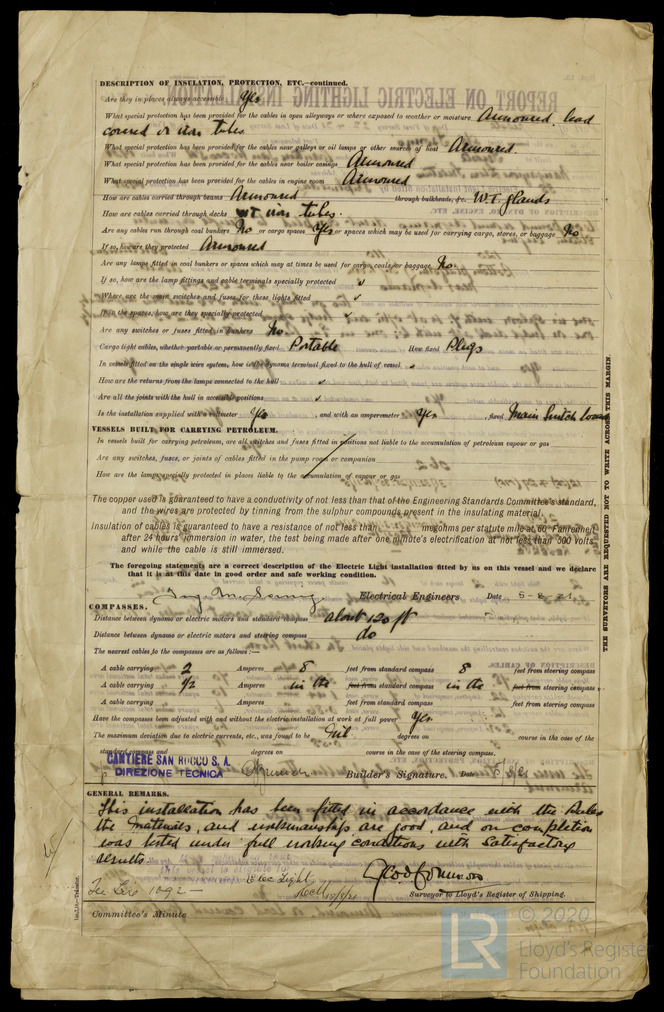 DESCRIPTION OF INSULATION, PROTECTION, ETC.—continued.
Are they in places always accessible Yes
What special protection has been provided for the cables in open alleyways or where exposed to weather or moisture Armoured, lead
covered or iron tubes.
What special protection has been provided for the cables near galleys or oil lamps or other sources of heat Armoured.
What special protection has been provided for the cables near boiler casings Armoured
What special protection has been provided for the cables in engine room Armoured
How are cables carried through beams Armoured through bulkheads, &c. W.T. glands
How are cables carried through decks WT iron tubes.
Are any cables run through coal bunkers No or cargo spaces Yes or spaces which may be used for carrying cargo, stores, or baggage No
If so, how are they protected Armoured
Are any lamps fitted in coal bunkers or spaces which may at times be used for cargo, coals, or baggage No.
If so, how are the lamp fittings and cable terminals specially protected ✓
Where are the main switches and fuses for these lights fitted ✓
If in the spaces, how are they specially protected ✓
Are any switches or fuses fitted in bunkers No
Cargo light cables, whether portable or permanently fixed Portable How fixed Plugs
In vessels fitted on the single wire system, how is the dynamo terminal fixed to the hull of vessel ✓
How are the returns from the lamps connected to the hull ✓
Are all the joints with the hull in accessible positions ✓
Is the installation supplied with a voltmeter Yes , and with an amperemeter Yes , fixed Main Switch board
VESSELS BUILT FOR CARRYING PETROLEUM.
In vessels built for carrying petroleum, are all switches and fuses fitted in positions not liable to the accumulation of petroleum vapour or gas
Are any switches, fuses, or joints of cables fitted in the pump room or companion
How are the lamps specially protected in places liable to the accumulation of vapour or gas
The copper used is guaranteed to have a conductivity of not less than that of the Engineering Standards Committee's standard,
and the wires are protected by tinning from the sulphur compounds present in the insulating material.
Insulation of cables is guaranteed to have a resistance of not less than megohms per statute mile at 60° Fahrenheit
after 24 hours' immersion in water, the test being made after one minute's electrification at not less than 500 volts
and while the cable is still immersed.
The foregoing statements are a correct description of the Electric Light installation fitted by us on this vessel and we declare
that it is at this date in good order and safe working condition.
Electrical Engineers Date 5-8-21
COMPASSES.
Distance between dynamo or electric motors and standard compass about 120 ft
Distance between dynamo or electric motors and steering compass do
The nearest cables to the compasses are as follows:—
A cable carrying 2 Amperes 8 feet from standard compass 8 feet from steering compass
A cable carrying 1/2 Amperes in the feet from standard compass in the feet from steering compass
A cable carrying Amperes feet from standard compass feet from steering compass
Have the compasses been adjusted with and without the electric installation at work at full power Yes
The maximum deviation due to electric currents, etc., was found to be Nil degrees on course in the case of the
standard compass and degrees on course in the case of the steering compass.
CANTIERE SAN ROCCO S. A.
DIREZIONE TECNICA
Builder's Signature. Date 5/8/21
GENERAL REMARKS.
This installation has been fitted in accordance with the Rules
the materials, and workmanship are good, and on completion
was tested under full working conditions with satisfactory
results.
Elec Light
Surveyor to Lloyd's Register of Shipping.
Committee's Minute
THE SURVEYORS ARE REQUESTED NOT TO WRITE ACROSS THIS MARGIN.
LR
© 2020
Lloyd's Register
Foundation